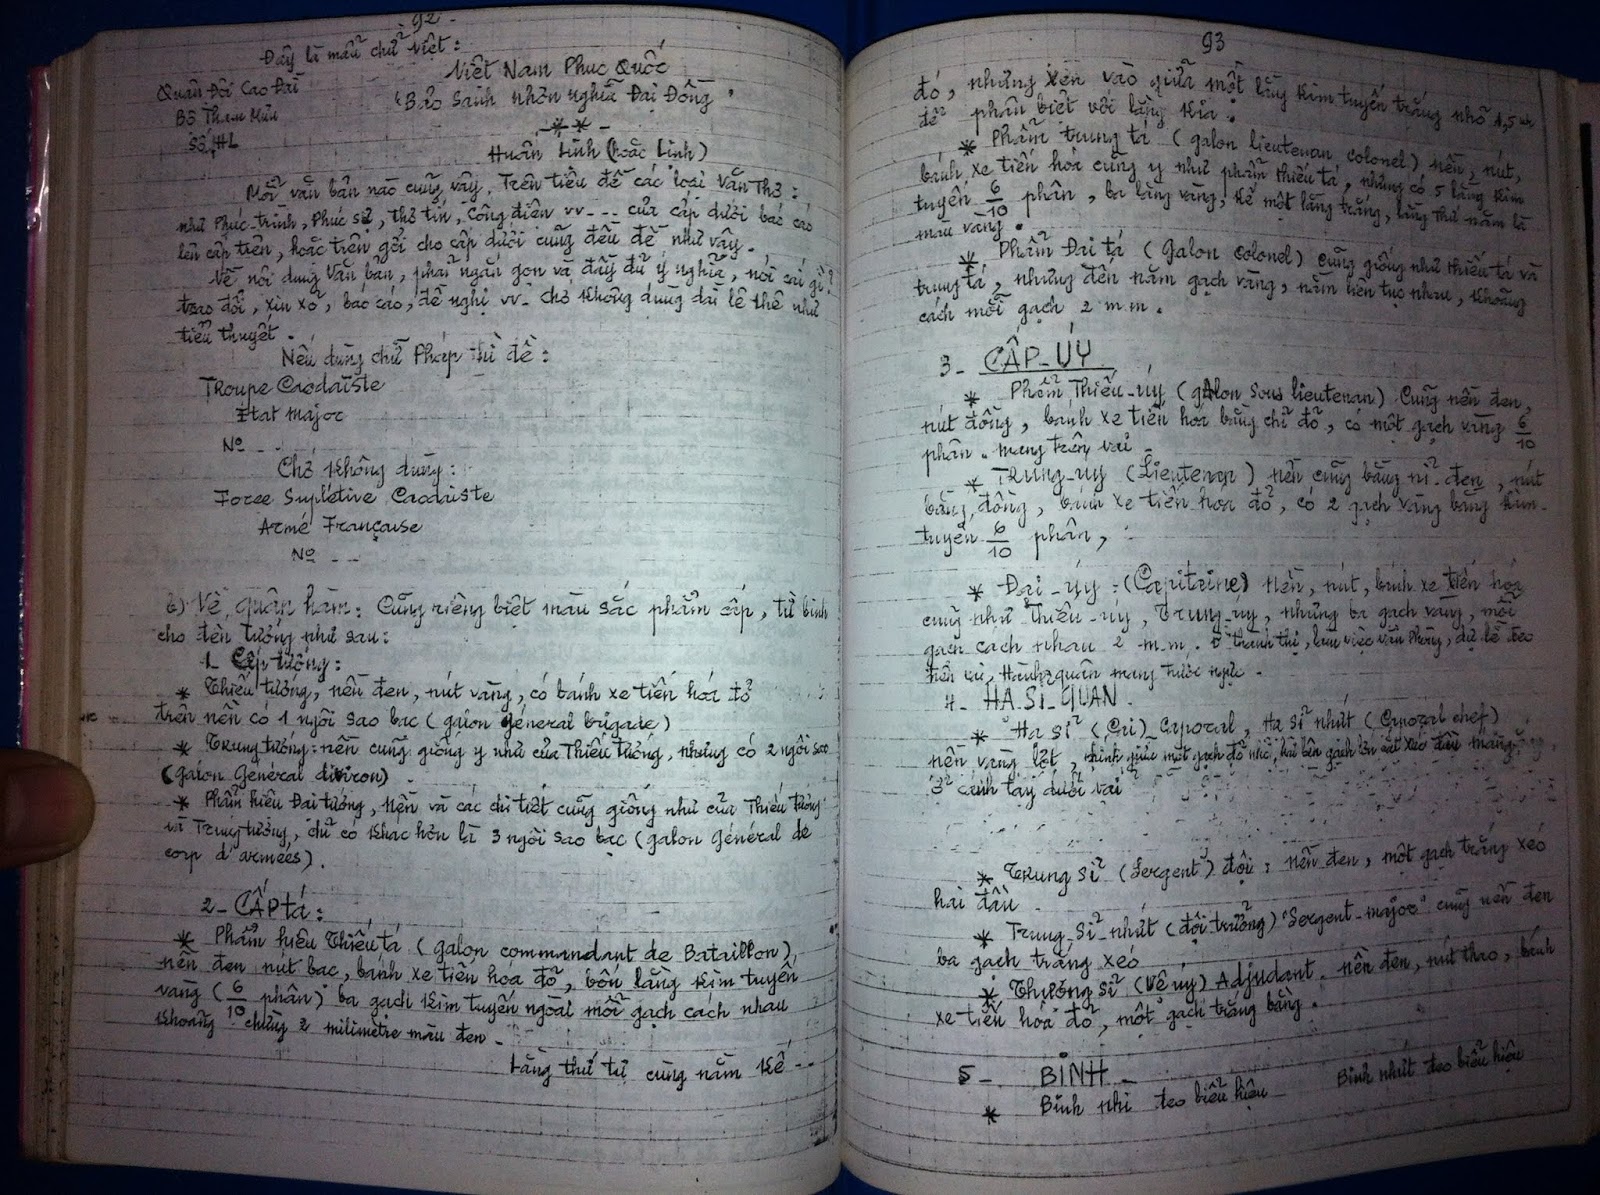 92-
Đây là mẫu chữ Việt :
Việt Nam Phục Quốc
Quân Đội Cao Đài
"Bảo Sanh nhơn nghĩa Đại Đồng"
Bộ Tham Mưu
Số HL
Huấn Linh (hoặc Linh)
Mỗi văn bản nào cũng vậy, Trên tiêu đề các loại Văn Thơ :
như Phúc-trình, Phúc sự, thơ tín, Công điện vv--- của cấp dưới báo cáo
lên cấp trên, hoặc trên gởi cho cấp dưới cũng đều đề như vậy.
Về nội dung văn bản, phải ngắn gọn và đầy đủ ý nghĩa, nói cái gì?
trao đổi, xin xỏ, báo cáo, đề nghị vv- chớ không dùng dài lê thê như
tiểu thuyết.
Nếu dùng chữ Pháp thì đề :
Troupe Caodaïste
Etat major
No - -
Chớ không dùng :
Force Suplétive Caodaiste
Armé Française
No - -
b) Về quân hàm : Cũng riêng biệt màu sắc phẩm cấp, từ binh
cho đến tướng như sau :
1- Cấp tướng :
* Thiếu tướng, nền đen, nút vàng, có bánh xe tiến hóa đỏ
trên nền có 1 ngôi sao bạc (galon général brigade)
* Trung tướng : nền cũng giống y như của Thiếu tướng, nhưng có 2 ngôi sao
(galon Général diviron)
* Phẩm hiệu Đại tướng, nền và các chi tiết cũng giống như của Thiếu tướng
và Trung tướng, chỉ có khác hơn là 3 ngôi sao bạc (galon Général de
corp d'armées).
2- CẤP tá :
* Phẩm hiệu Thiếu tá (galon commandant de Bataillon)
nền đen nút bạc, bánh xe tiến hóa đỏ, bốn lằng Kim tuyến
vàng (6/10 phân) ba gạch kim tuyến ngoài mỗi gạch cách nhau
khoảng chừng 2 milimetre màu đen -
Lằng thứ tư cùng năm kế --
93
đó, nhưng xen vào giữa một lằng kim tuyến trắng nhỏ 1,5
để phân biệt với lằng kia.
* Phẩm trung tá (galon lieutenan colonel) nền, nút,
bánh xe tiến hóa cũng y như phẩm thiếu tá, nhưng có 5 lằng kim
tuyến 6/10 phân, ba lằng vàng, kế một lằng trắng, lằng thứ năm là
màu vàng.
* Phẩm Đại tá (galon colonel) cũng giống như thiếu tá và
trung tá, nhưng đến năm gạch vàng, nằm liên tục nhau, khoảng
cách mỗi gạch 2 m.m.
3- CẤP-ÚY
* Phẩm Thiếu-úy (galon sous lieutenan) Cũng nền đen,
nút đồng, bánh xe tiến hóa bằng chỉ đỏ, có một gạch vàng 6/10
phân, mang trên vai -
* Trung-úy (Lieutenan) nền cũng bằng nỉ đen, nút
bằng đồng, bánh xe tiến hóa đỏ, có 2 gạch vàng bằng kim-
tuyến 6/10 phân,
* Đại-úy : (Capitaine) nền, nút, bánh xe tiến hóa
cũng như Thiếu-úy, Trung-úy, nhưng ba gạch vàng, mỗi
gạch cách nhau 2 m.m. Ở Thành thị, làm việc văn phòng, dự lễ đeo
trên vai, Hành quân mang trước ngực.
4- HA.SĨ.QUAN
* Hạ sĩ (Cai) Caporal, Hạ sĩ nhứt (Caporal chef)
nền vàng lợt, chính giữa một gạch đỏ nhỏ, hai bên gạch lớn cắt xéo đầu mang
ở cánh tay dưới vai
* Trung sĩ (Sergent) đội : nền đen, một gạch trắng xéo
hai đầu
* Trung-sĩ-nhứt (đội trưởng) "Sergent-major" cũng nền đen
ba gạch trắng xéo
* Thượng sĩ (Vê úy) Adjudant nền đen, nút thao, bánh
xe tiến hóa đỏ, một gạch trắng bằng.
5- BINH -
* Binh nhì đeo biểu hiệu Binh nhứt đeo biểu hiệu